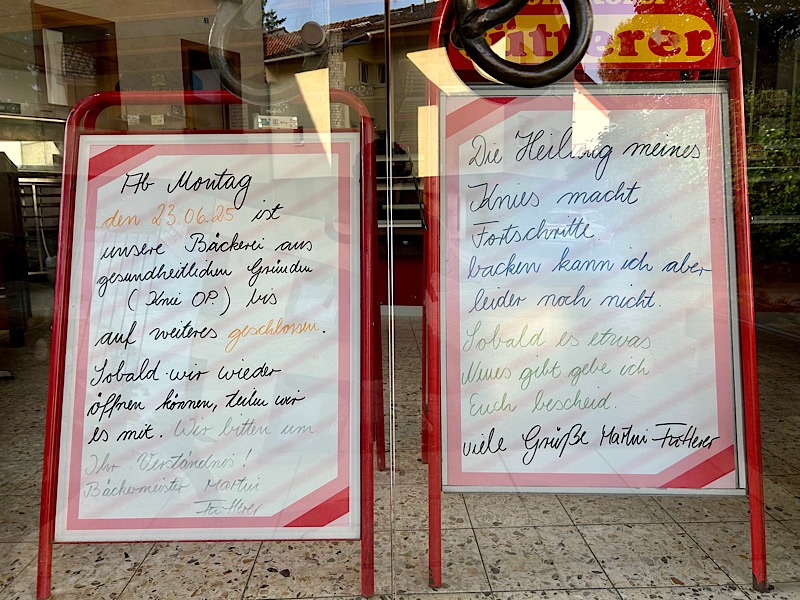 Ab Montag
den 23.06.25 ist
unsere Bäckerei aus
gesundheitlichen Gründen
(Knie OP.) bis
auf weiteres geschlossen.
Sobald wir wieder
öffnen können, teilen wir
es mit. Wir bitten um
Ihr Verständnis!
Bäckermeister Martin
Fütterer
Fütterer
Die Heilung meines
Knies macht
Fortschritte.
backen kann ich aber
leider noch nicht.
Sobald es etwas
Neues gibt gebe ich
Euch bescheid.
viele Grüße Martin Fütterer